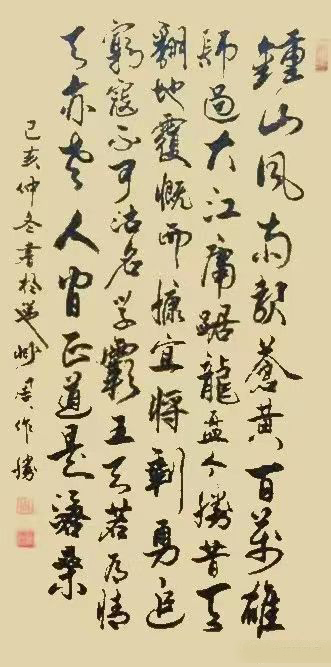 鍾山风雨起蒼黄百萬雄
師過大江虎踞龍盘今勝昔天
翻地覆慨而慷宜將剩勇追
窮寇不可沽名学霸王天若有情
天亦老人间正道是滄桑
己亥仲冬書於 作勝